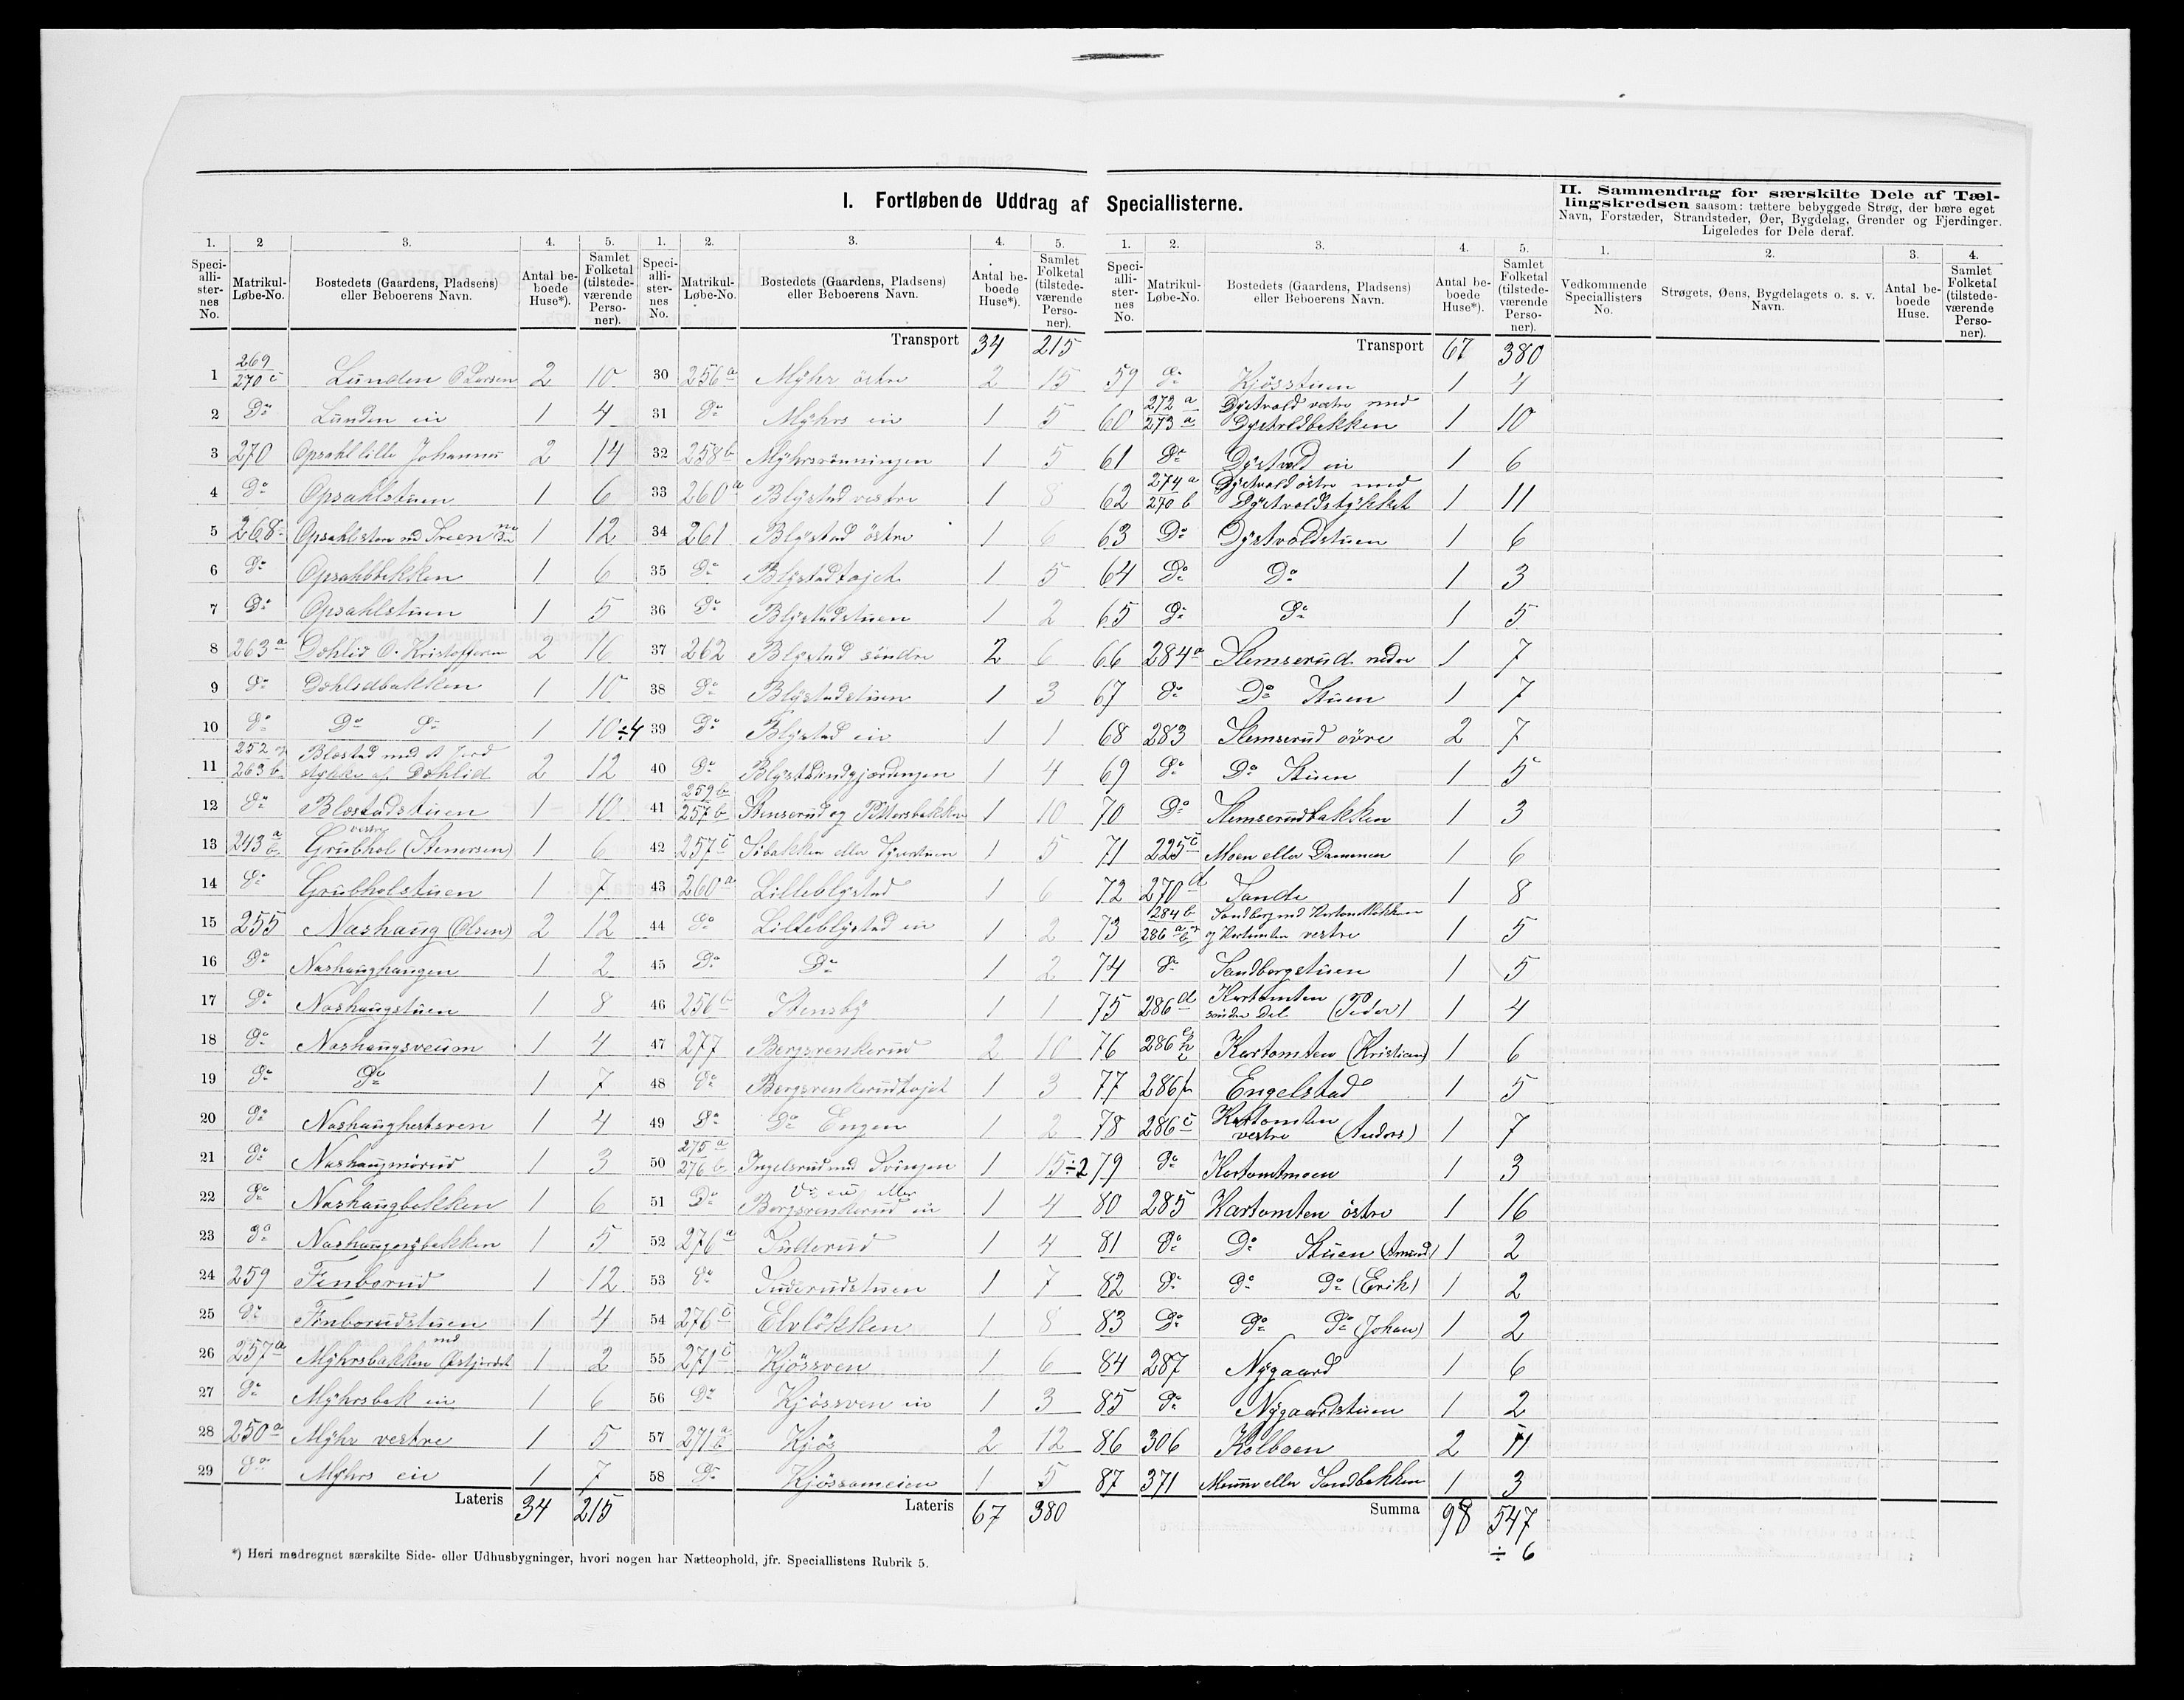 I. Fortløbende Uddrag af Speciallisterne.
1. 2 3. 4. 5.
Speciallisternes No. Matrikul-Løbe-No. Bostedets (Gaardens, Pladsens) eller Beboerens Navn. Antal beboede Huse*). Samlet Folketal (tilstedeværende Personer).
1 269/270 c Lunden O Larsen 2 10
2 Do Lunden ein 1 4
3 270 Opsahl lille Johannes 2 14
4 Do Opsahlstuen 1 6
5 268 1 12
6 Do Opsahlbakken 1 6
7 Do Opsahlstuen 1 5
8 263 a Dæhlid O. Kristoffersen 2 16
9 Do Dæhlidbakken 1 10
10 Do Do Do 1 10÷4
11 252 og 263 b Blostad med et Jord stykke af Dæhlid 2 12
12 Do Blostadstuen 1 10
13 243 a b Grubhol vestre (Stenersen) 1 6
14 Do Grubholstuen 1 7
15 255 Nashaug (Olsen) 2 12
16 Do Nashaughaugen 1 2
17 Do Nashaugstuen 1 8
18 Do Nashaugsveum 1 4
19 Do Do 1 7
20 Do 1 4
21 Do 1 3
22 Do Nashaugbakken 1 6
23 Do 1 5
24 259 Finborud 1 12
25 Do Finborudstuen 1 4
26 257 a Myhrsbakken med 1 2
27 Do Myhrsbak ein 1 6
28 250 a Myhr vestre 1 5
29 Do Myhrs ein 1 7
Lateris 34 215
*) Heri medregnet særskilte Side- eller Udhusbygninger, hvori nogen har Natteophold, jfr. Speciallistens Rubrik 5.
1. 2. 3. 4. 5.
Speciallisternes No. Matrikul-Løbe-No. Bostedets (Gaardens, Pladsens) eller Beboerens Navn. Antal beboede Huse*). Samlet Folketal (tilstedeværende Personer).
Transport 34 215
30 256 a Myhr östre 2 15
31 Do Myhrs ein 1 5
32 258 b Myhrsrönningen 1 5
33 260 a Blystad vestre 1 8
34 261 Blystad östre 1 6
35 Do Blystadtøjet 1 5
36 Do Blystadstuen 1 2
37 262 Blystad söndre 2 6
38 Do Blystadstuen 1 3
39 Do Blystad ein 1 1
40 Do Blystadindgjærdingen 1 4
41 259 b 257 b Stenserud og Pettersbakken 1 10
42 257 c 1 5
43 260 a Lilleblystad 1 6
44 Do Lilleblystad ein 1 2
45 Do Do 1 2
46 256 b Stensby 1 1
47 277 Bergsrenkerud 2 10
48 Do Bergsrenkerudtøjet 1 3
49 Do Do Engen 1 2
50 275 a 276 b Ingelsrud med Svingen 1 15÷2
51 Do Do ein eller Bergsrenkerud ein 1 4
52 276 a Tullerud 1 4
53 Do 1 7
54 276 c Elvlökken 1 8
55 271 c Kjössven 1 6
56 Do Kjössven ein 1 3
57 271 a b Kjös 2 12
58 Do Kjössameien 1 5
Lateris 67 380
1. 2. 3. 4. 5.
Speciallisternes No. Matrikul-Løbe-No. Bostedets (Gaardens, Pladsens) eller Beboerens Navn. Antal beboede Huse*). Samlet Folketal (tilstedeværende Personer).
Transport 67 380
59 Do Kjösstuen 1 4
60 272 a 273 a Dystvold vestre med Dystvoldbakken 1 10
61 Do Dystvold ein 1 6
62 274 a 270 b Dystvold östre med Dystvoldstykket 1 11
63 Do Dystvoldstuen 1 6
64 Do Do 1 3
65 Do Do 1 5
66 284 a Slemserud nedre 1 7
67 Do Do Stuen 1 7
68 283 Slemserud øvre 2 7
69 Do Do Stuen 1 5
70 Do Slemserudbakken 1 3
71 225 c Moen eller Dammen 1 6
72 270 d Sande 1 8
73 284 b 286 a b og Kartomten vestre 1 5
74 Do Sandbergstuen 1 5
75 286 d Kartomten söndre Del (Peder) 1 4
76 286 Kartomten (Kristian) 1 6
77 286 f Engelstad 1 5
78 286 c Kartomten vestre (Anders) 1 7
79 Do Kartomtmoen 1 3
80 285 Kartomten östre 1 16
81 Do Do Stuen (Amund) 1 2
82 Do Do Do (Erik) 1 2
83 Do Do Do (Johan) 1 2
84 287 Nygaard 1 6
85 Do Nygaardstuen 1 2
86 306 Kolboen 2 11
87 371 eller Sandbakken 1 3
Summa 98 547
÷ 6
II. Sammendrag for særskilte Dele af Tællingskredsen saasom: tættere bebyggede Strøg, der bære eget
Navn, Forstæder, Strandsteder, Øer, Bygdelag, Grender og Fjerdinger.
Ligeledes for Dele deraf.
1. 2. 3. 4.
Vedkommende Speciallisters No. Strøgets, Øens, Bygdelagets o. s. v. Navn. Antal beboede Huse. Samlet Folketal (tilstedeværende Personer).